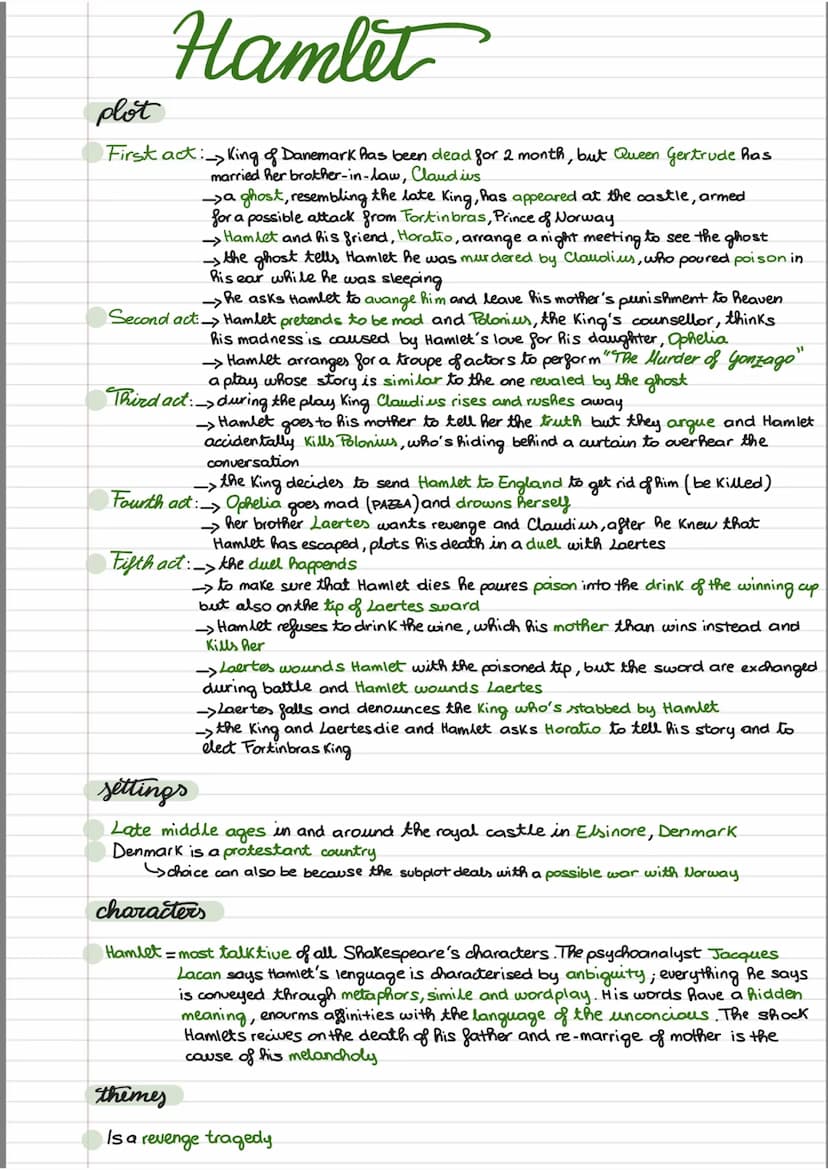 Hamlet
plot
First act: → King of Danemark has been dead for 2 month, but Queen Gertrude has
married her brother-in-law, Claudius
→ a ghost, resembling the late King, has appeared at the castle, armed
for a possible attack from Fortinbras, Prince of Norway
→ Hamlet and his friend, Horatio, arrange a night meeting to see the ghost
→ the ghost tells Hamlet he was murdered by Claudius, who poured poison in
his ear while he was sleeping
→ he asks Hamlet to avange him and leave his mother's punishment to heaven
Second act: → Hamlet pretends to be mad and Polonius, the King's counsellor, thinks
his madness is caused by Hamlet's love for his daughter, Ophelia
→ Hamlet arranges for a troupe of actors to perform "The Murder of Gonzago"
a play whose story is similar to the one revaled by the ghost
Third act: → during the play King Claudius rises and rushes away
→ Hamlet goes to his mother to tell her the truth but they argue and Hamlet
accidentally kills Polonius, who's hiding behind a curtain to overhear the
conversation
→ the King decides to send Hamlet to England to get rid of him (be killed)
Fourth act: → Ophelia goes mad (PAZZA) and drowns herself
→ her brother Laertes wants revenge and Claudius, after he knew that
Hamlet has escaped, plots his death in a duel with Laertes
Fifth act: → the duel happends
→ to make sure that Hamlet dies he poures poison into the drink of the winning cup
but also on the tip of Laertes sward
→ Hamlet refuses to drink the wine, which his mother than wins instead and
kills her
→ Laertes wounds Hamlet with the poisoned tip, but the sword are exchanged
during battle and Hamlet wounds Laertes
→ Laertes falls and denounces the King who's stabbed by Hamlet
→ the King and Laertes die and Hamlet asks Horatio to tell his story and to
elect Fortinbras King
settings
Late middle ages in and around the royal castle in Elsinore, Denmark
Denmark is a protestant country
↳ choice can also be because the subplot deals with a possible war with Norway
characters
Hamlet = most talktive of all Shakespeare's characters. The psychoanalyst Jacques
Lacan says Hamlet's lenguage is characterised by anbiguity; everything he says
is conveyed through metaphors, simile and wordplay. His words have a hidden
meaning, enourms affinities with the language of the unconcious. The shock
Hamlets recives on the death of his father and re-marrige of mother is the
cause of his melancholy
themes
Is a revenge tragedy